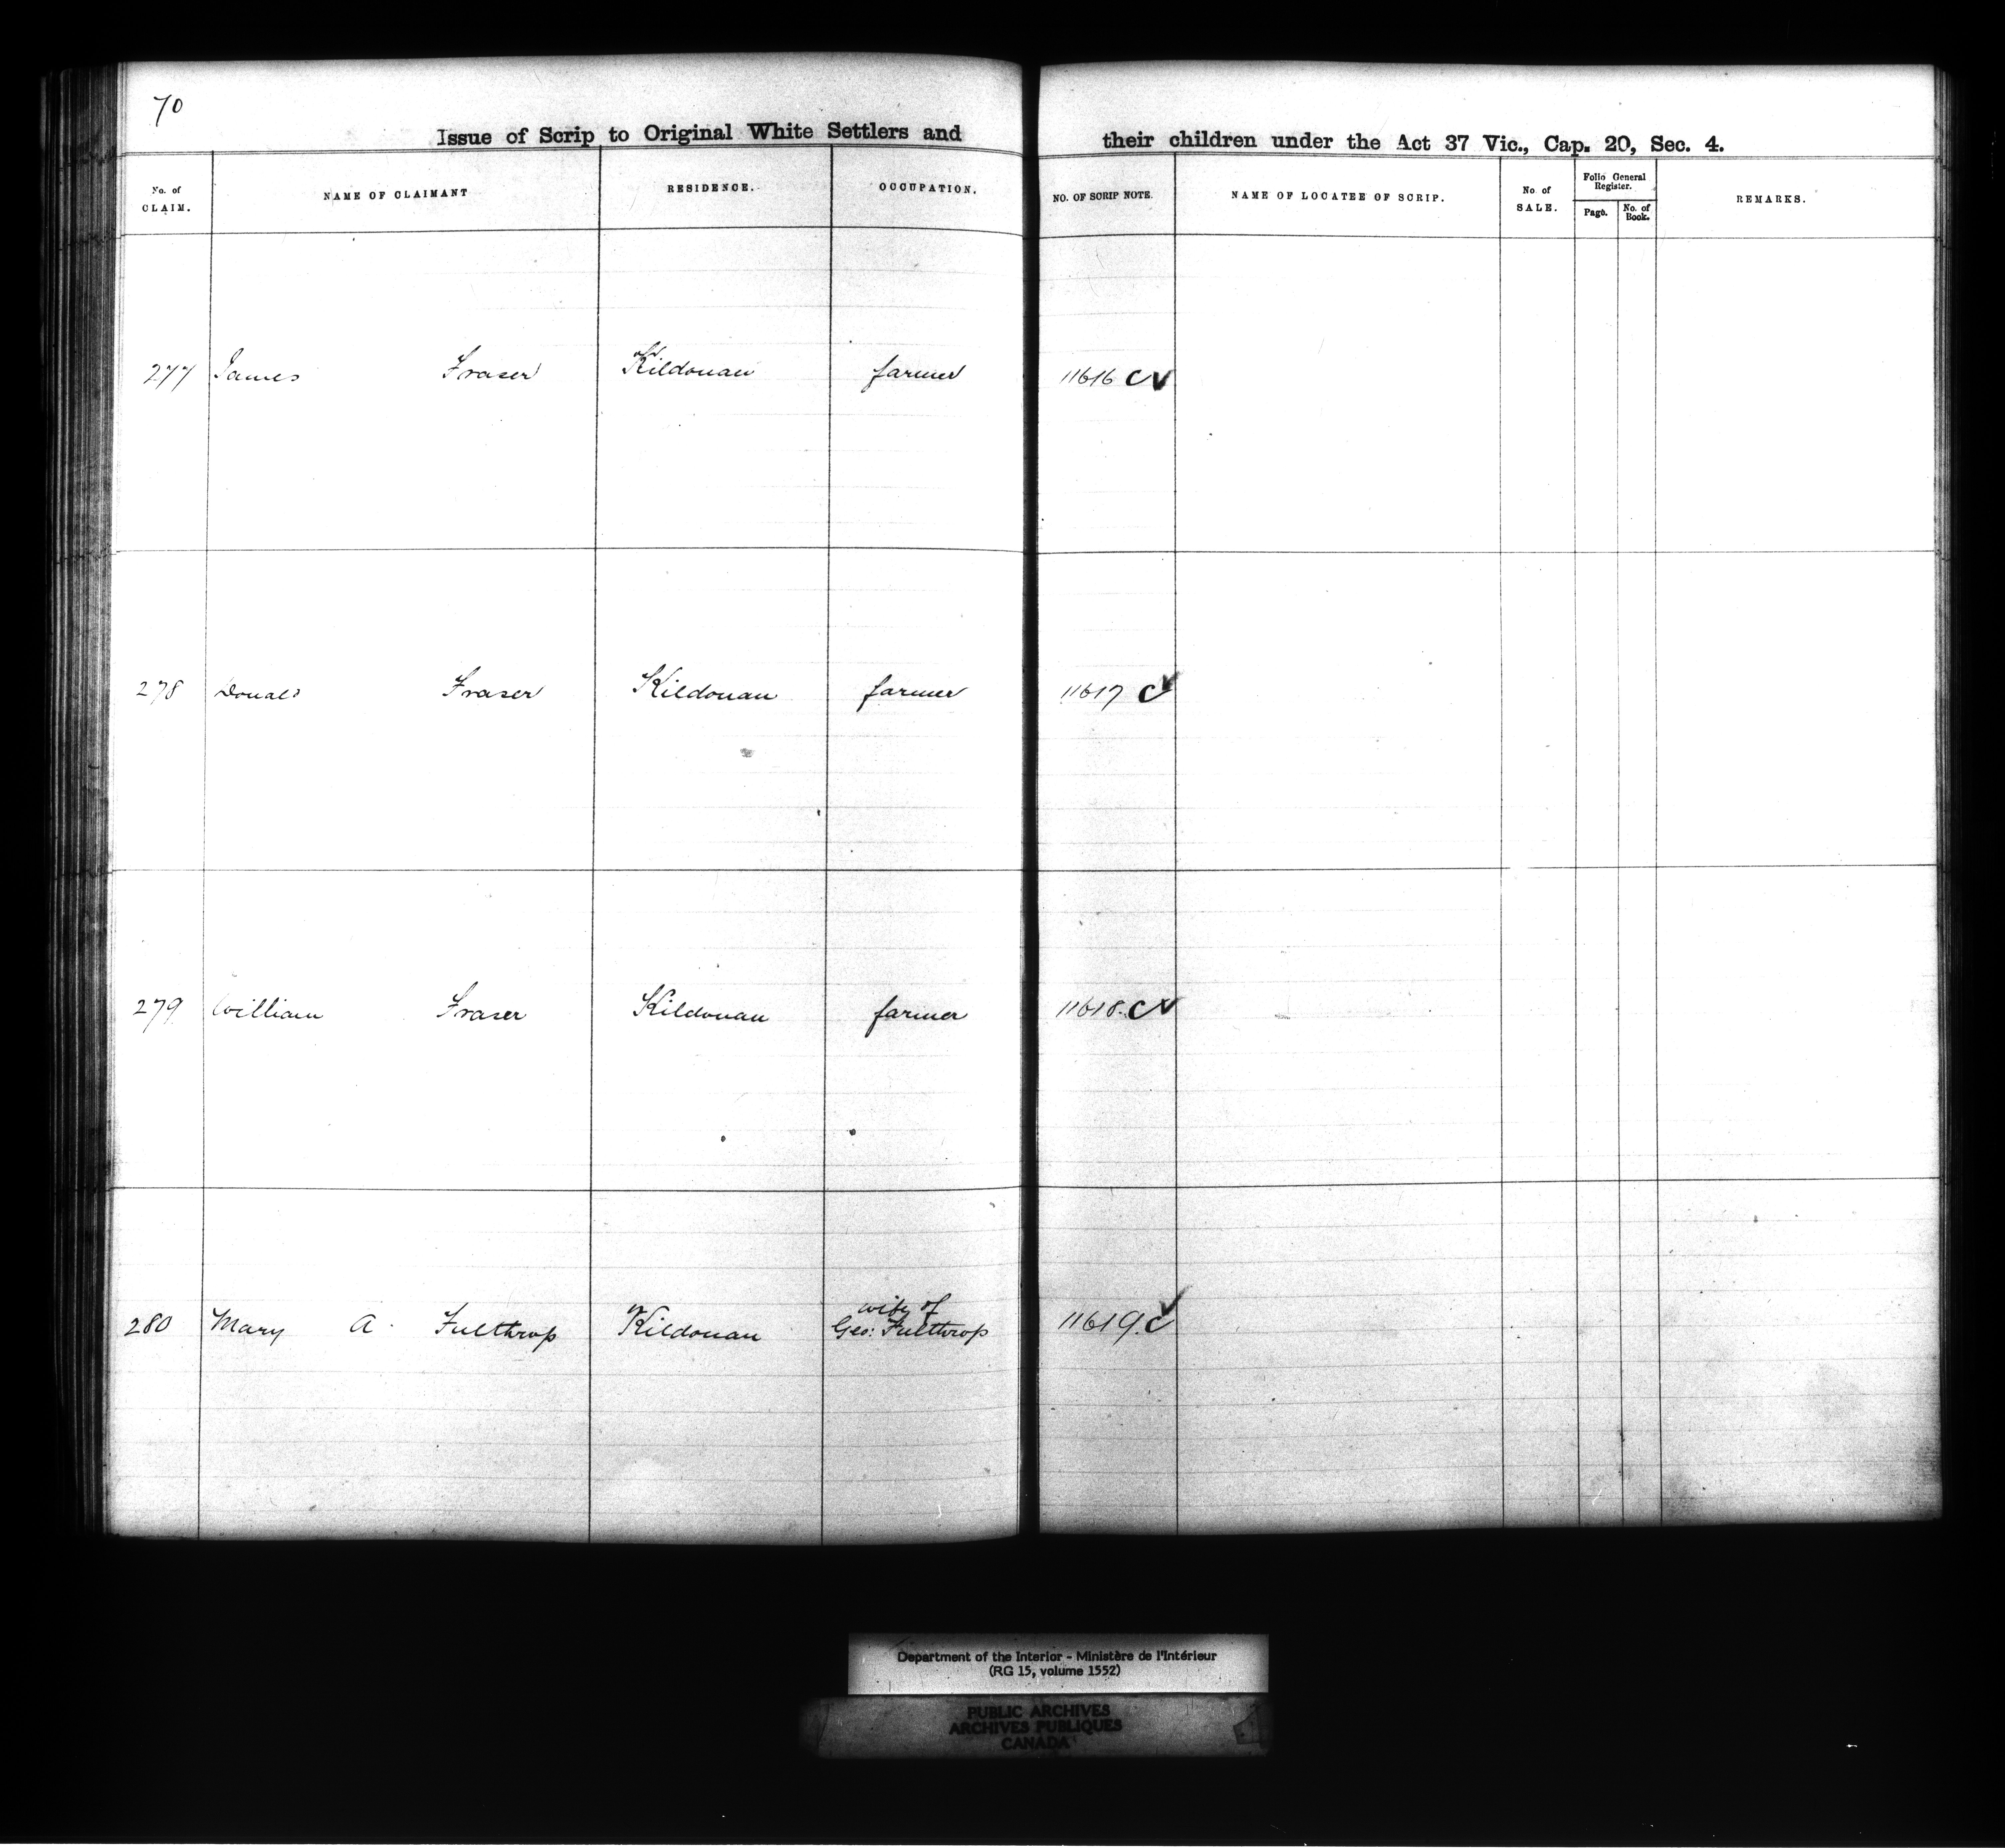 70
Issue of Scrip to Original White Settlers and their children under the Act 37 Vic., Cap. 20, Sec. 4.
No. of CLAIM. NAME OF CLAIMANT RESIDENCE. OCCUPATION. NO. OF SCRIP NOTE. NAME OF LOCATEE OF SCRIP. No. of SALE. Folio General Register. Page. No. of Book. REMARKS.
277 James Fraser Kildonan farmer 11616 C
278 Donald Fraser Kildonan farmer 11617 C
279 William Fraser Kildonan farmer 11618. C
280 Mary A. Fulthrop Kildonan wife of Geo: Fulthrop 11619. C
Department of the Interior - Ministère de l'Intérieur
(RG 15, volume 1552)
PUBLIC ARCHIVES
ARCHIVES PUBLIQUES
CANADA